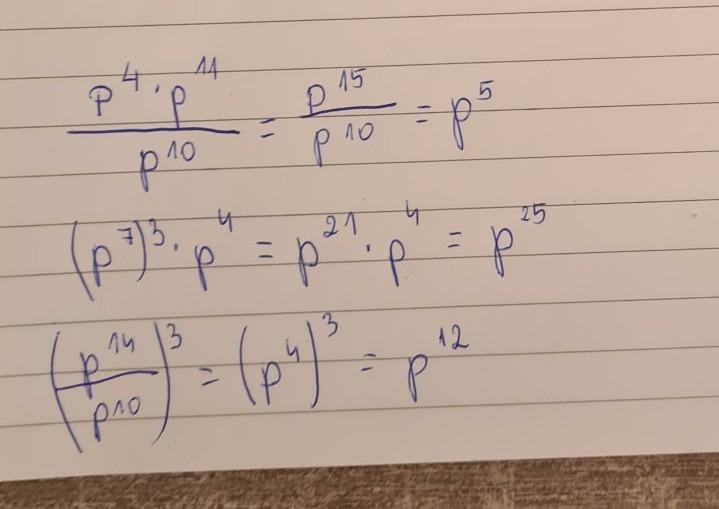 \frac{p^4 \cdot p^{11}}{p^{10}} = \frac{p^{15}}{p^{10}} = p^5
(p^7)^3 \cdot p^4 = p^{21} \cdot p^4 = p^{25}
\left(\frac{p^{14}}{p^{10}}\right)^3 = (p^4)^3 = p^{12}